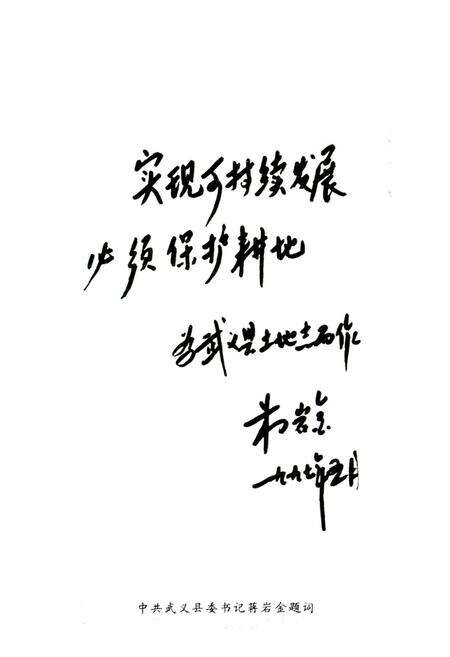 实现可持续发展
必须保护耕地
为武义县土地志而作
岩金
一九九七年五月
中共武义县委书记蒋岩金题词